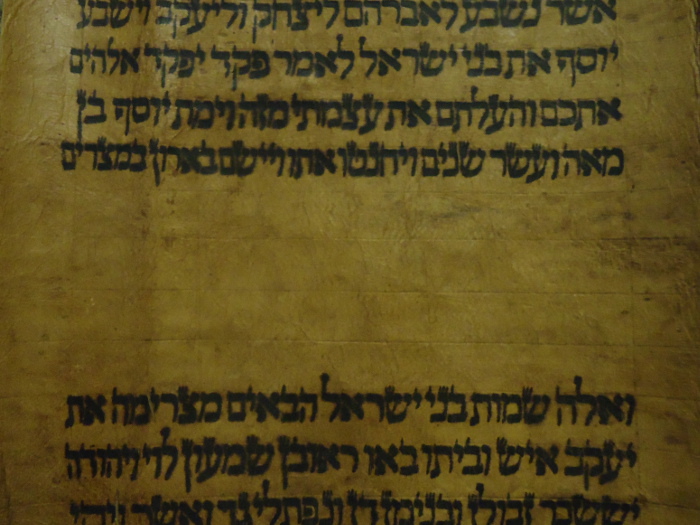 אשר נשבע לאברהם ליצחק וליעקב וישבע
יוסף את בני ישראל לאמר פקד יפקד אלהים
אתכם והעלתם את עצמתי מזה וימת יוסף בן
מאה ועשר שנים ויחנטו אתו ויישם בארון במצרים
ואלה שמות בני ישראל הבאים מצרימה את
יעקב איש וביתו באו ראובן שמעון לוי ויהודה
יששכר זבולן ובנימן דן ונפתלי גד ואשר ויהי